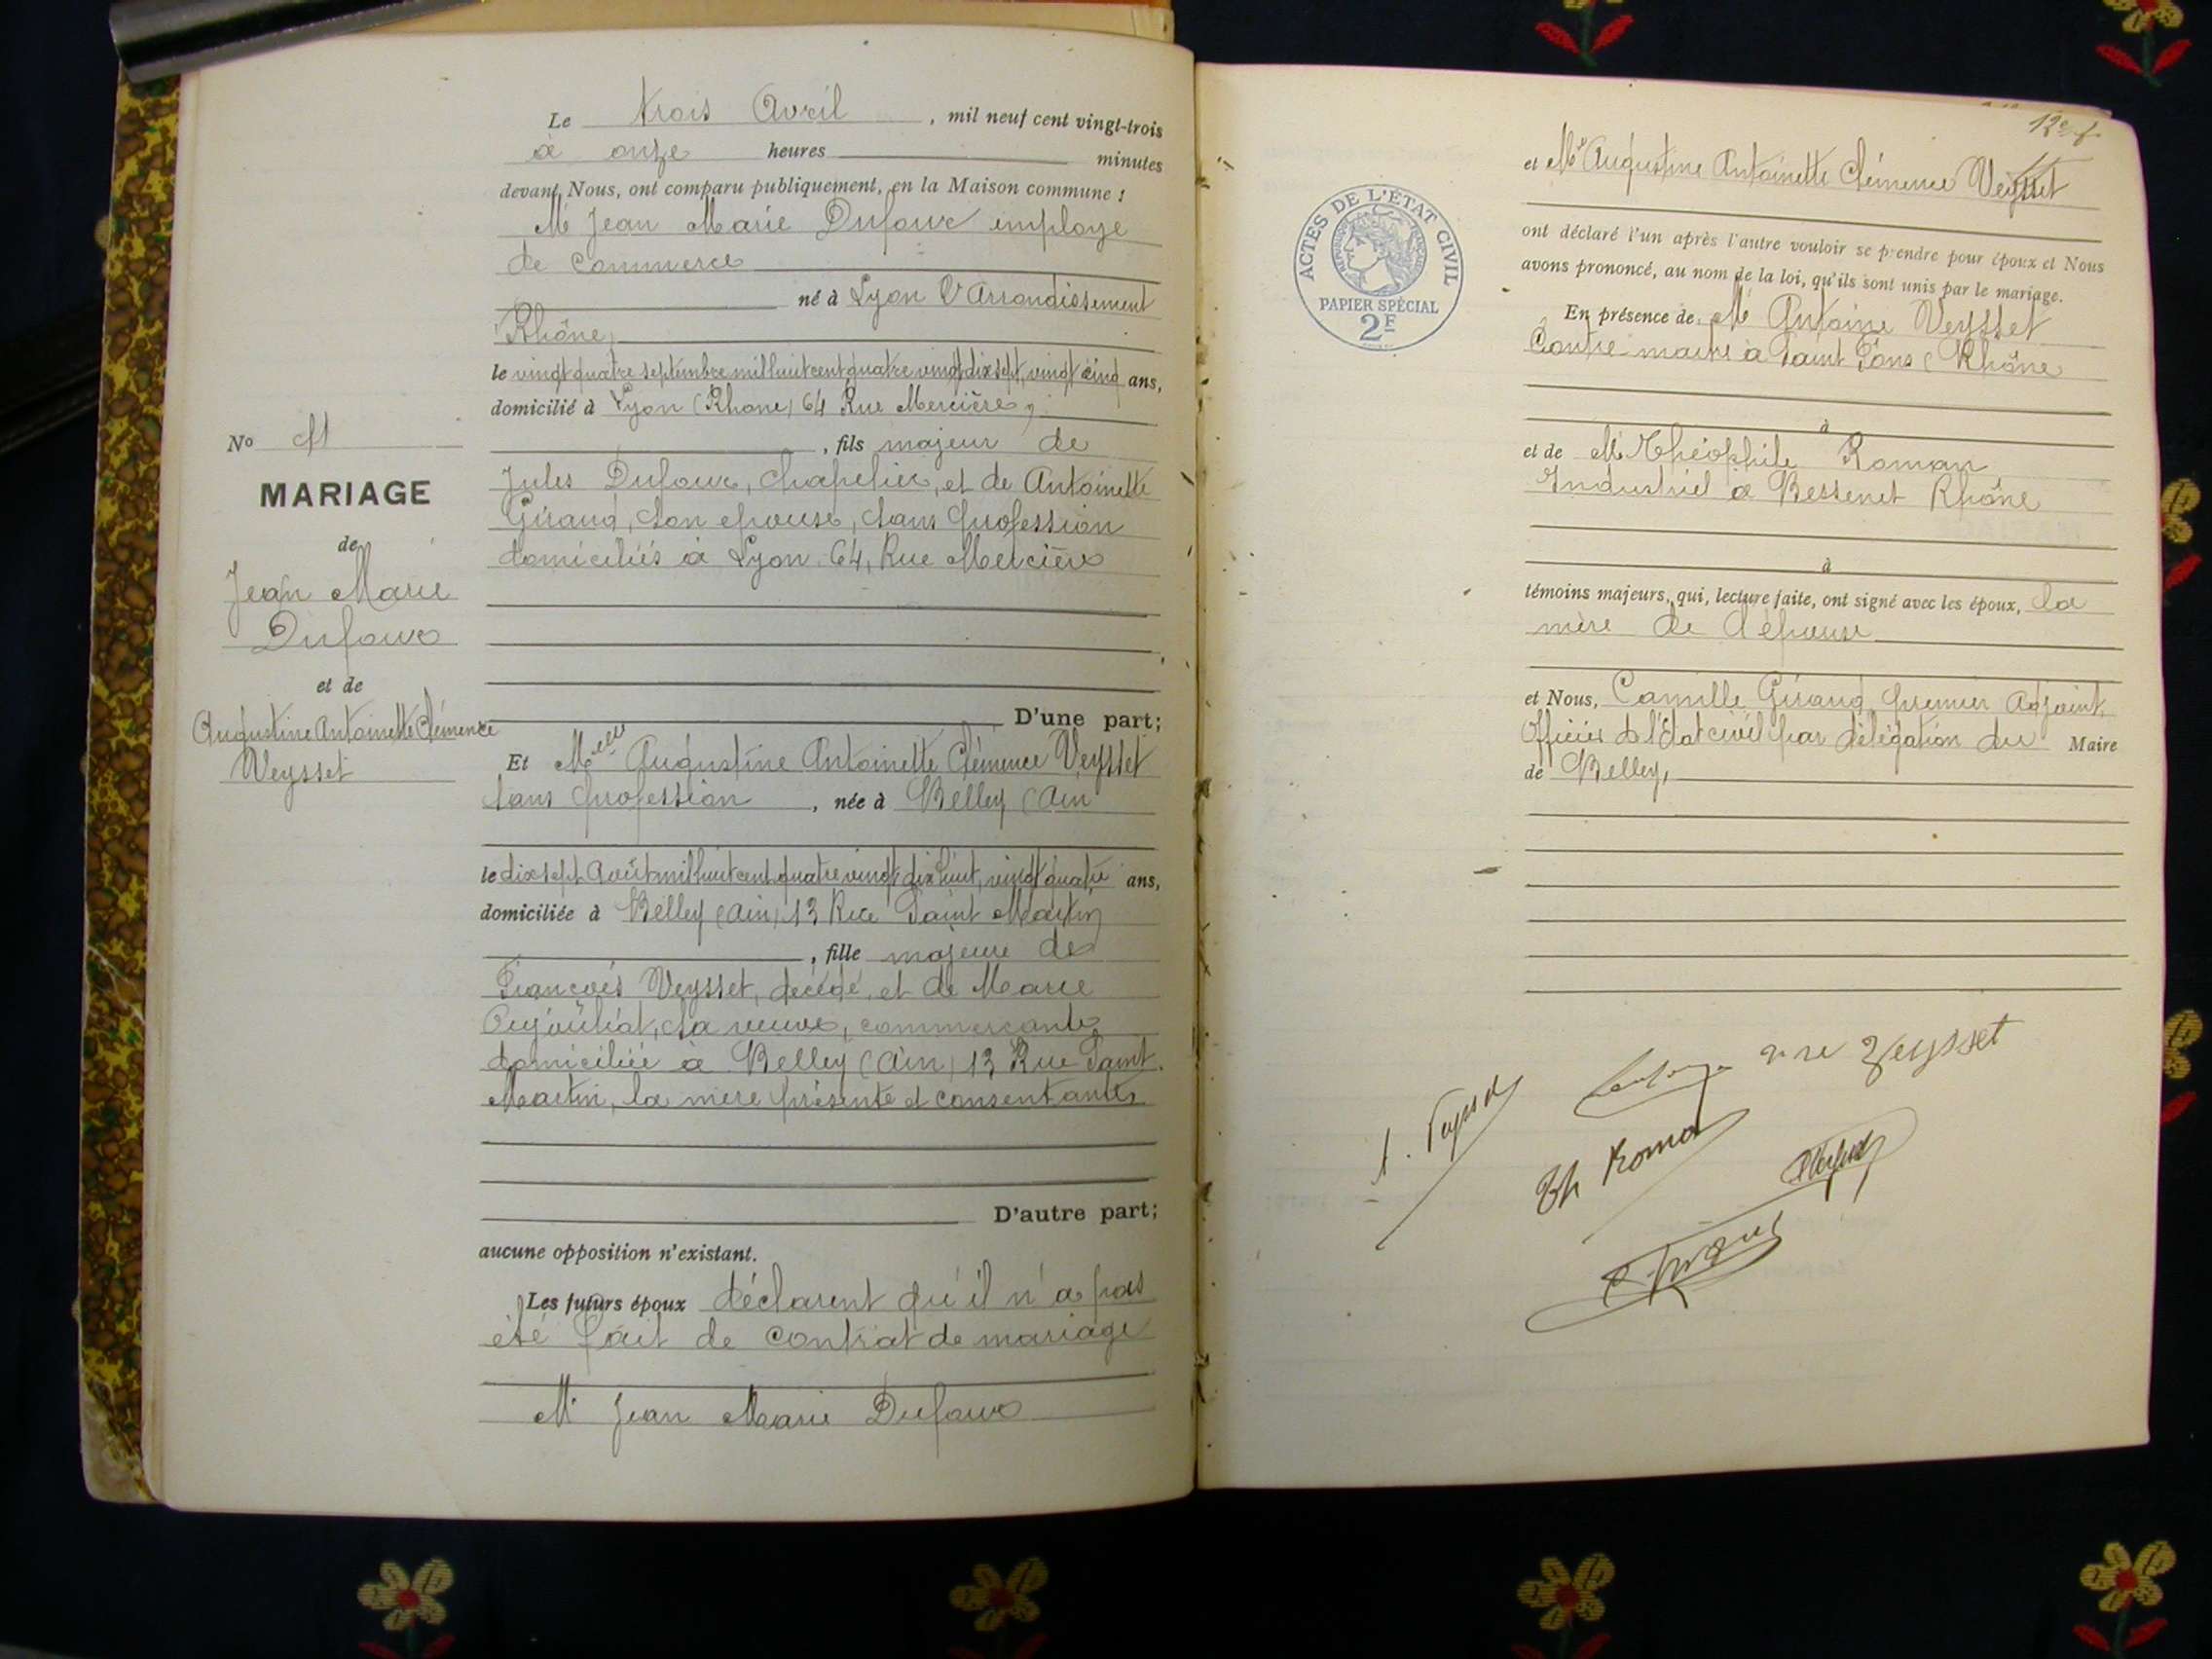 Le trois Avril, mil neuf cent vingt-trois
à onze heures minutes
devant Nous, ont comparu publiquement, en la Maison commune :
Mr Jean Marie Dufour employe
de commerce
né à Lyon V Arrondissement
Rhône,
le vingt quatre septembre mil huit cent quatre vingt dix sept, vingt cinq ans,
domicilié à Lyon (Rhone) 64 Rue Mercière,
, fils majeur de
Jules Dufour, Chapelier, et de Antoinette
Giraud, son epouse, sans profession
domiciliés à Lyon 64, Rue Mercière
D'une part;
No
MARIAGE
de
Jean Marie
Dufour
et de
Augustine Antoinette Clémence
Veysset
Et Melle Augustine Antoinette Clémence Veysset
sans profession, née à Belley (Ain
le dix sept Août mil huit cent quatre vingt dix huit, vingt quatre ans,
domiciliée à Belley (Ain) 13 Rue Saint Martin
, fille majeure de
François Veysset, décédé, et de Marie
sa veuve, commerçante
domiciliée à Belley (Ain) 13 Rue Saint
Martin, la mère présente et consentante
D'autre part;
aucune opposition n'existant.
Les futurs époux déclarent qu'il n'a pas
été fait de contrat de mariage
Mr Jean Marie Dufour
12e f.
et Mle Augustine Antoinette Clémence Veysset
ont déclaré l'un après l'autre vouloir se prendre pour époux et Nous
avons prononcé, au nom de la loi, qu'ils sont unis par le mariage.
ACTES DE L'ÉTAT CIVIL
RÉPUBLIQUE FRANÇAISE
PAPIER SPÉCIAL
2F
En présence de Mr Antoine Veysset
Contre maitre à Saint Fons (Rhône
à
et de Mr Théophile Roman
Industriel à Bessenet Rhône
à
témoins majeurs, qui, lecture faite, ont signé avec les époux, la
mère de l'épouse
et Nous, Camille Giraud, premier Adjoint,
Officier de l'Etat civil par délégation du Maire
de Belley,
Veysset
A. Veysset
Th Roman
C. Giraud